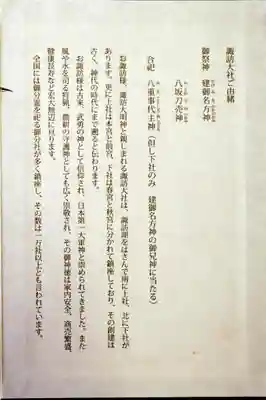 諏訪大社ご由緒
御祭神　建御名方神
八坂刀売神
合祀　八重事代主神（但し下社のみ　建御名方神の御兄神に当たる）
お諏訪様、諏訪大明神と親しまれる諏訪大社は、諏訪湖をはさんで南に上社、北に下社が
あります。更に上社は本宮と前宮、下社は春宮と秋宮に分かれて鎮座しており、その創建は
古く、神代の時代にまで遡ると伝わります。
お諏訪様は古来、武勇の神として信仰され、日本第一大軍神と崇められてきました。また
風や水を司る狩猟、農耕の守護神としても広く崇敬され、その御神徳は家内安全、商売繁盛、
健康長寿など宏大無辺に亘ります。
全国には御分霊を祀る御分社が多く鎮座し、その数は一万社以上とも言われています。